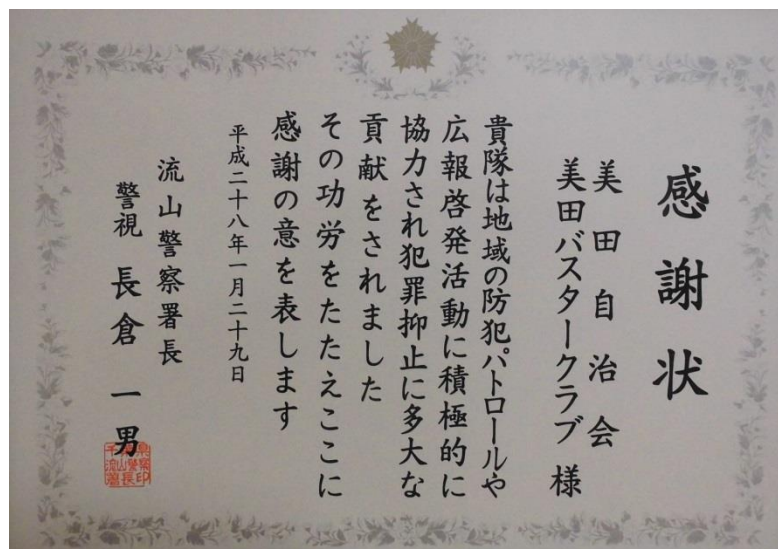 感謝状
美田自治会
美田バスタークラブ 様
貴隊は地域の防犯パトロールや
広報啓発活動に積極的に
協力され犯罪抑止に多大な
貢献をされました
その功労をたたえここに
感謝の意を表します
平成二十八年一月二十九日
流山警察署長
警視 長倉一男